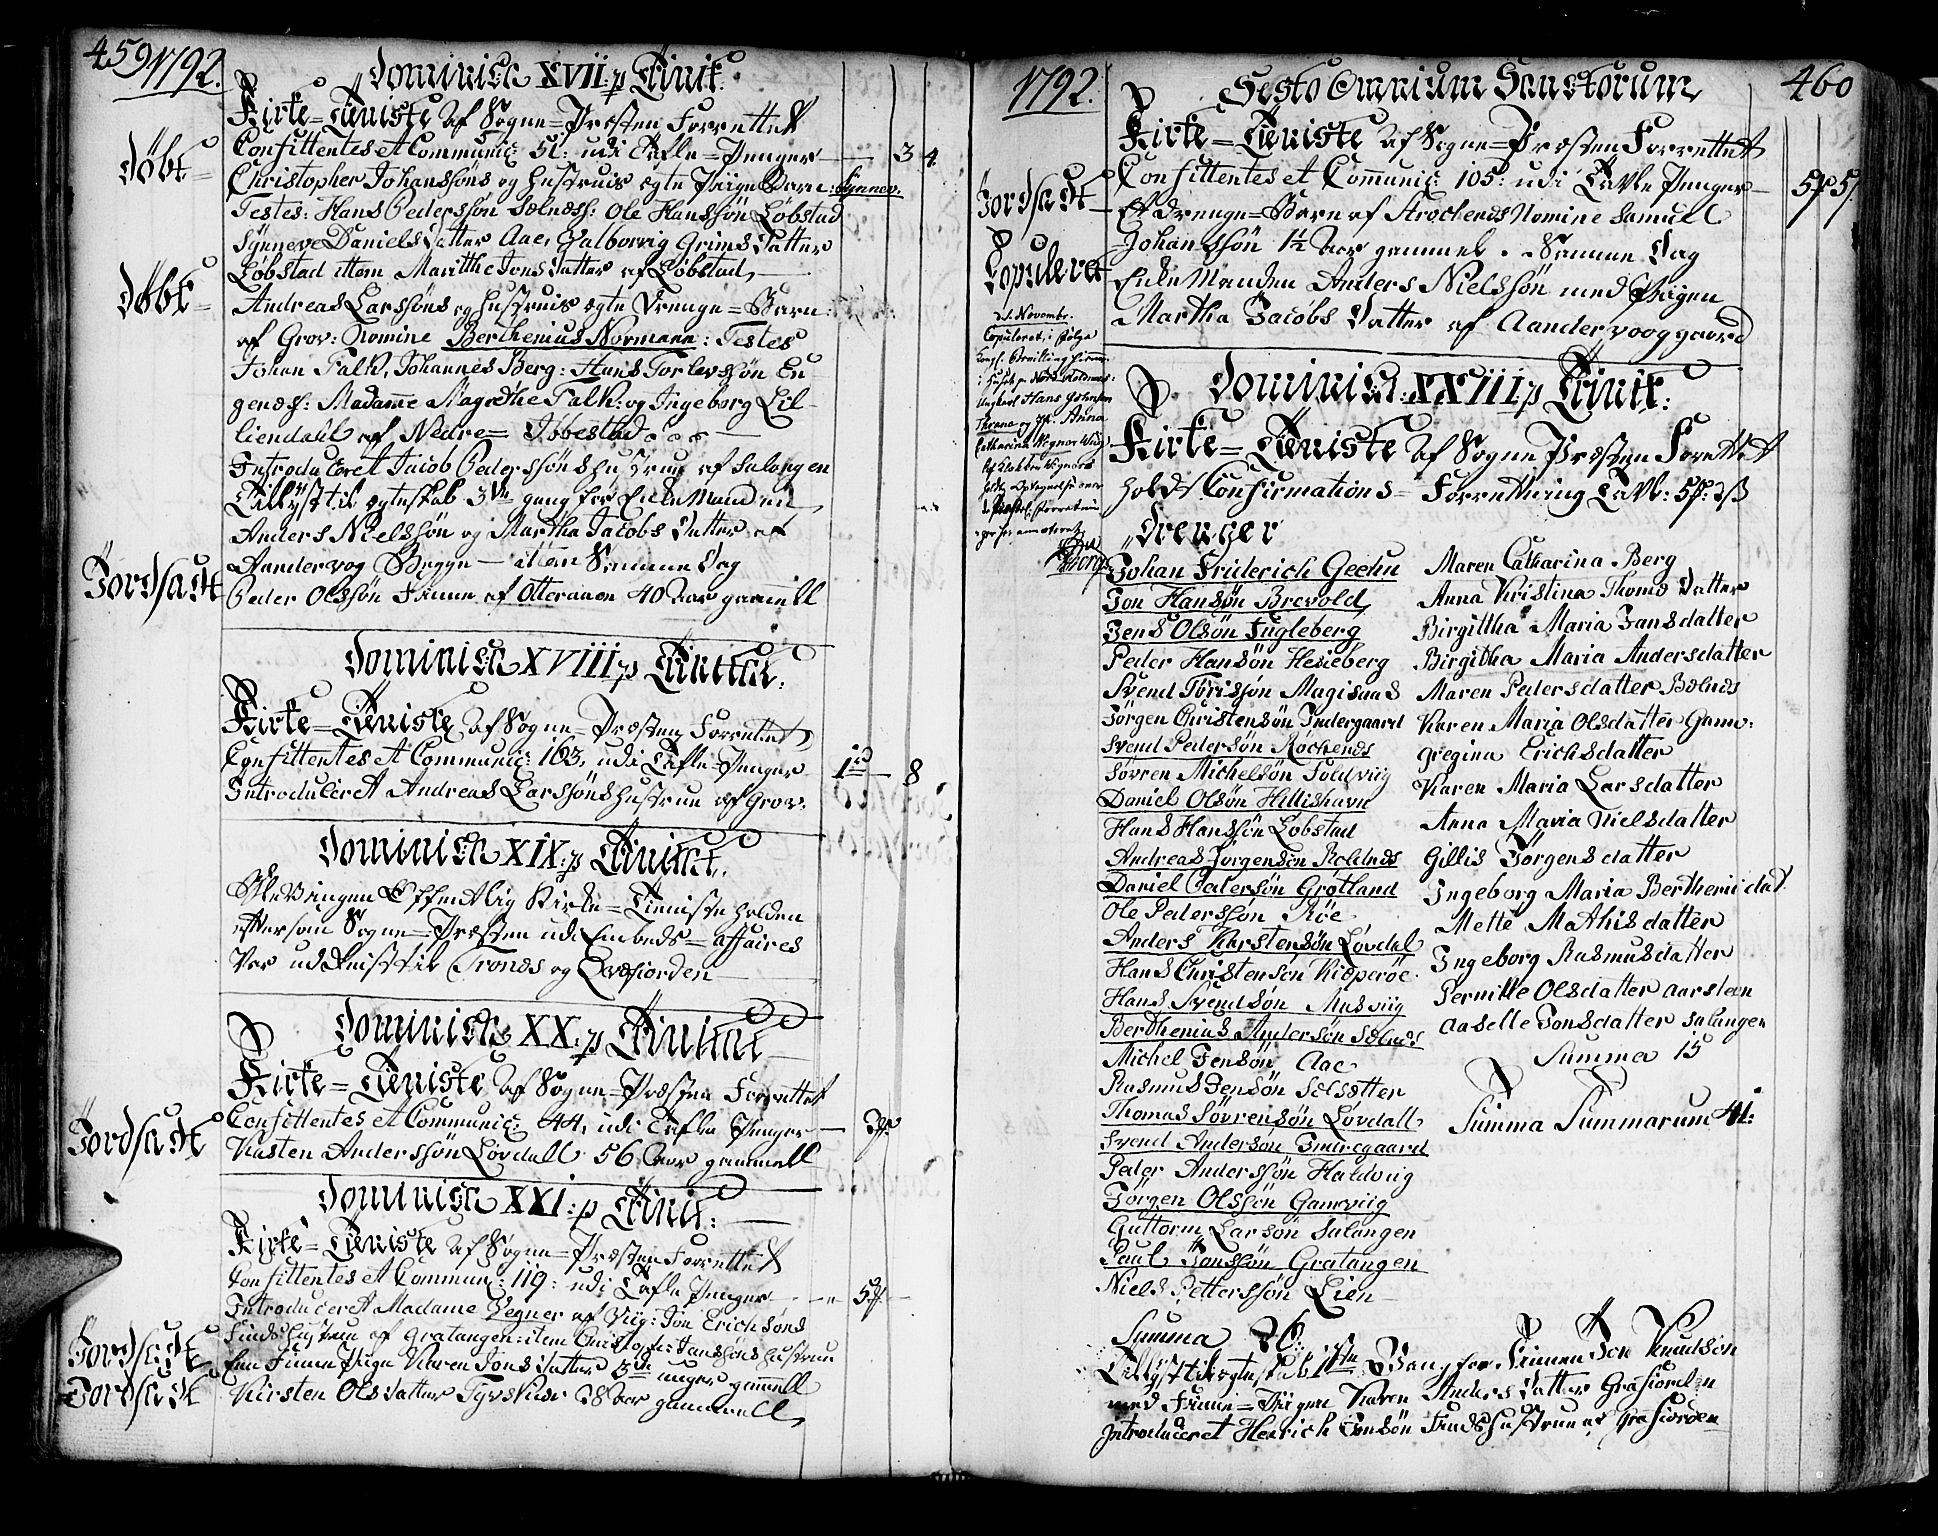 459 1792.
Dominica XVII: p Trinit:
Kirke=Tieniste af Sogne=Præsten Forrettet
Confittentes et Communic: 51: udi Tafle=Penger — 3 4.
Døbt=
Christopher Johanssøns og Hustrues ægte Piige Barn: Synnev.
Testes: Hans Pederssøn Sælnæss: Ole Hanssøn Løbstad
Synneve Daniels Datter Aae, Valborrig Grims Datter
Løbstad ittem Maritthe Jons Datter af Løbstad,
Døbt=
Andreas Larssøns og Hustrues ægte Drenge=Barn:
af Grov: Nomine Berthenius Normann: Testes
Johan Falk, Johannes Berg: Hans Torlevssøn En
genæss: Madamme Magrethe Falk: og Ingeborg Lil-
liendahl af Nedre= Jøbestad
Introduceret Jacob Pederssøns Hustrue af Salangen
Tillyst til ægteskab 3de gang for Enke Manden
Anders Nielssøn og Martha Jacobs Datter af
Aandervog Begge — ittem Samme Dag
Jordsadt
Peder Olssøn Finne af Otteraaen 40 Aar gamell
Dominica XVIII p Trinitat:
Kirke=Tieniste af Sogne=Præsten Forrettet
Confittentes et Communic: 163, udi Tafle=Penger 1rd — 8
Introduceret Andreas Larssøns Hustrue af Grov.
Dominica XIX: p Trinitat.
Blev ingen Offentlig Kirke=Tieniste holden
eftersom Sogne=Præsten udi Embeds=affaires
Var udreist til Tronæs og Qvæfiorden
Dominica XX: p Trinitat
Kirke=Tieniste af Sogne=Præsten Forrettet
Confittentes et Communic: 44, udi Tafle Penger —
Jordsadt
Karsten Anderssøn Løvdall 56 Aar gammell
Dominica XXI: p Trinit:
Kirke=Tieniste af Sogne=Præsten Forrettet
Confittentes et Commun: 119: udi Tafle Penger — 5
Introduceret Madame Wegner af Viig: Jon Erichsøns
Finds Hustrue af Gratangen: item Christopher Jansøns Hustrue
Jordsadt
Een Finne Pige Karen Jons Datter 3de uger gammell
Jordsadt
Kirsten Ols Datter 28 Aar gammell
1792. 460
Festo Omnium Sanctorum
Kirke=Tieniste af Sogne=Præsten Forrettet
Confittentes et Communic: 105: udi Tavle Penger —
Jordsadt
Et Drenge=Barn af Nomine Samuel
Johanssøn 1½ Aar gammel. Samme Dag
Copuleret
Enke Manden Anders Nielssøn med Pigen
Martha Jacobs Datter af Aandervoog gaard
d. Novembr.
Copuleret, i Følge
Hans
Anna
Catharina Wegner
Dominica: XXIII p Trinit:
Kirke=Tieniste af Sogne Præsten Forettet
Holdt Confirmations= Forrettning Tavl:
Drenger
Johan Friderich Geehn
Jon Hansøn Brevold
Jens Olsøn Fugleberg
Peder Hansøn Heseberg
Svend Torissøn Magisaas
Jørgen Christensøn Indergaard
Svend Pedersøn Røckenes
Søvren Michelsøn Foldviig
Daniel Olsøn Hilleshavn
Hans Hanssøn Løbstad
Andreas Jørgensøn Roldnes
Daniel Pedersøn Grøtland
Ole Pederssøn Røe
Anders Karstensøn Løvdal
Hans Christensøn Kioperøe
Hans Svendsøn Ansviig
Berthenius Andersøn Sælnes
Michel Jensøn Aae
Rasmus Jensøn Selsetter
Thomas Søvrensøn Løvdall
Svend Andersøn Indregaard
Peder Anderssøn Haldviig
Jørgen Olssøn Gamviig
Guttorm Larsøn Salangen
Paul Jonssøn Gratangen
Niels Pettersøn Lien
Summa 26:
Maren Catharina Berg
Anna Kristina Thoms Datter
Birgittha Maria Jansdatter
Birgitha Maria Andersdatter
Maren Pedersdatter Bælnes
Karen Maria Olsdatter Gamv:
Gregina Erichsdatter
Karen Maria Larsdatter
Anna Maria Nielsdatter
Gillis Jørgensdatter
Ingeborg Maria Bertheniidat.
Mette Mathisdatter
Ingeborg Rasmusdatter
Pernille Olsdatter Aarsteen
Aaselle Jonsdatter Salangen
Summa 15
Summa Summarum 41:
Tillyst til ægteskab 1ste Gang for Finnen Jon Knudsøn
med Finne=Pigen Karen Anders Datter Grafiorden
Introduceret Henrich Jonsøn Finds Hustrue af Grafiorden